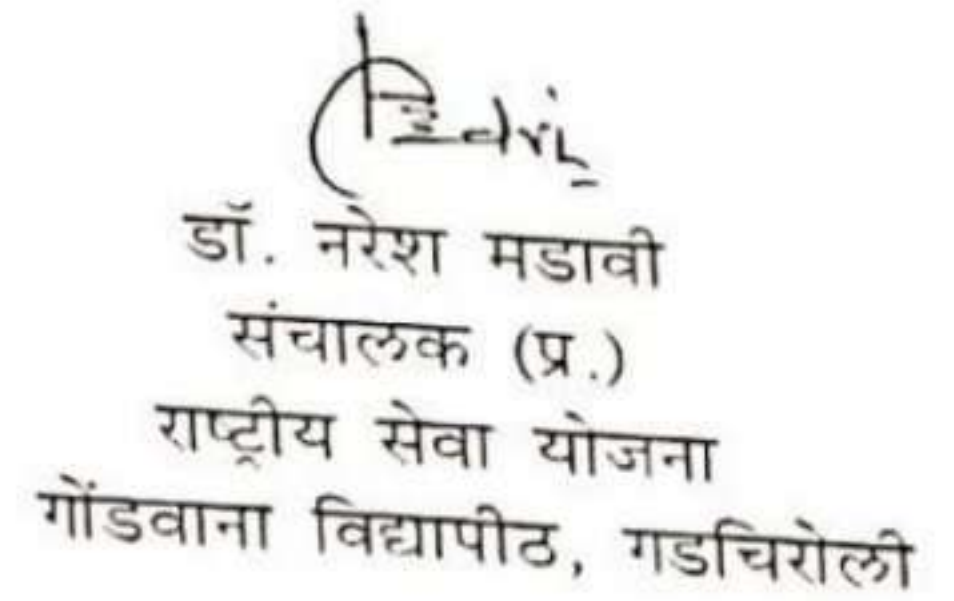 डॉ. नरेश मडावी
संचालक (प्र.)
राष्ट्रीय सेवा योजना
गोंडवाना विद्यापीठ, गडचिरोली